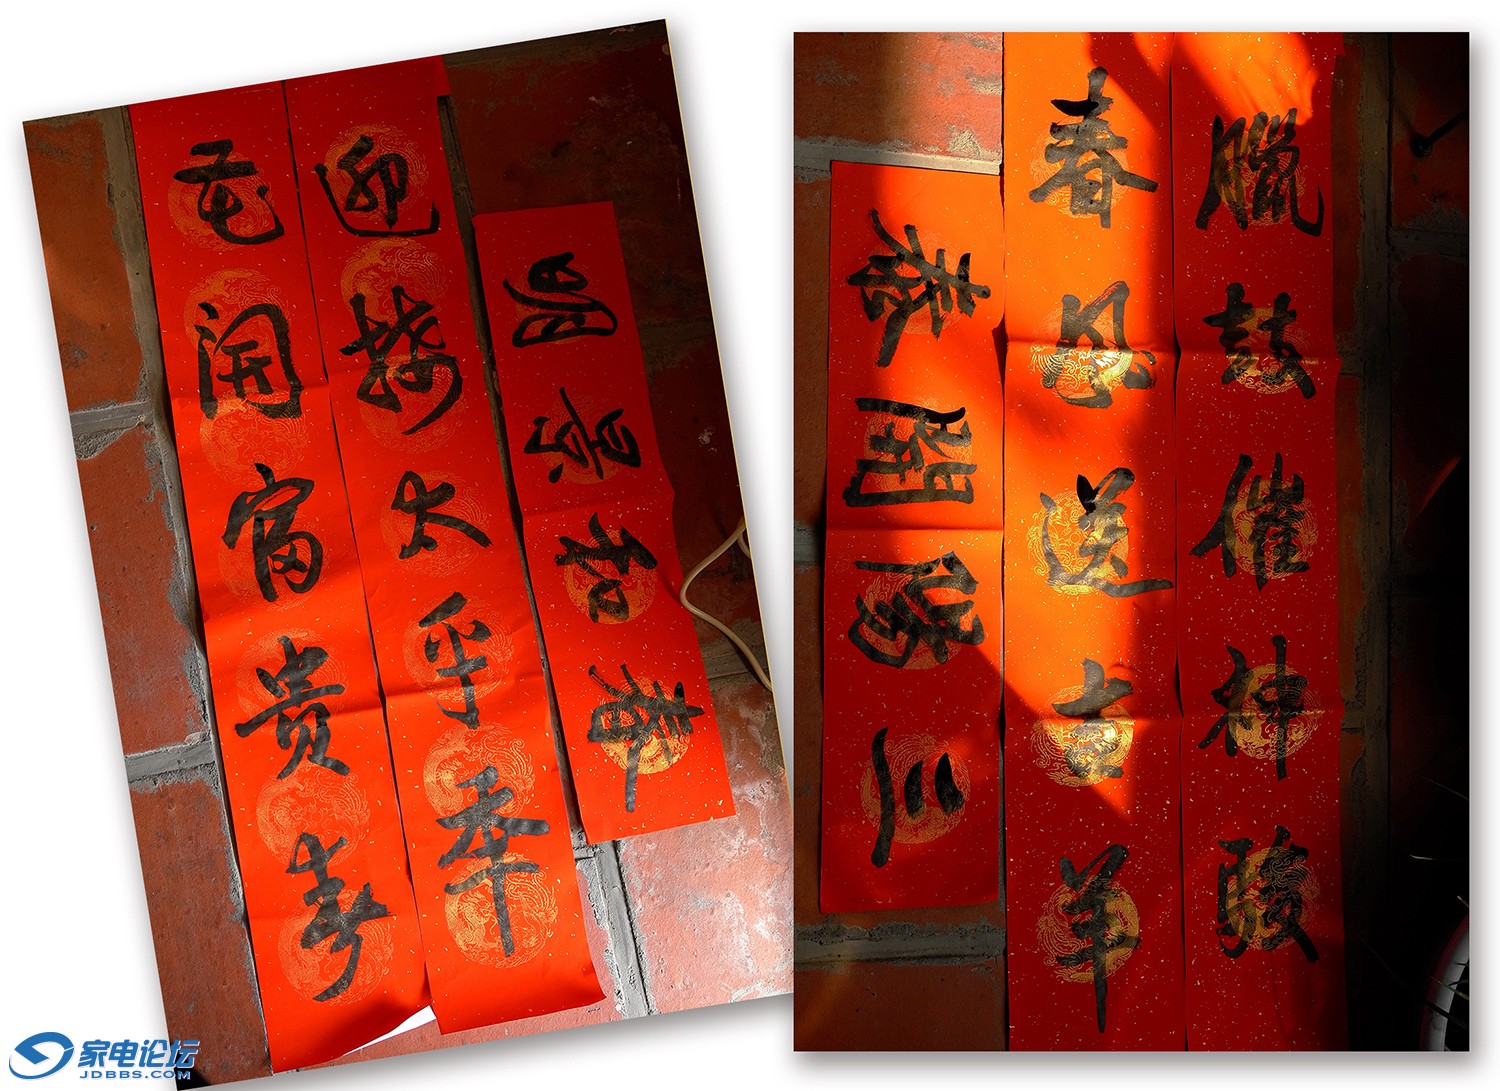 迎接太平年
花開富貴春
春和景明
臘鼓催神駿
春風送吉羊
三陽開泰
家电论坛
JDBBS.COM